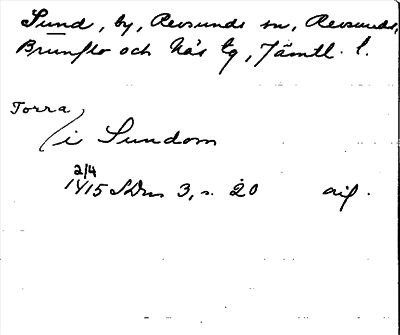 Sund, by, Revsunds sn, Revsunds,
Brunflo och Näs tg, Jämtl. l.
Torra
/ i Sundom
2/4
1415 SDns 3, s. 20 aif.